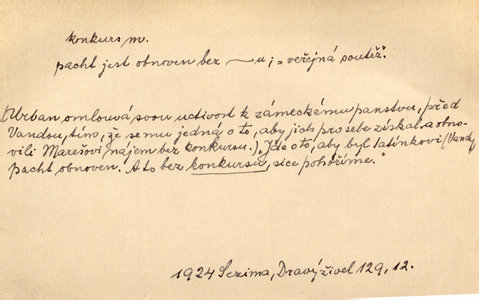 konkurs m.
pacht jest obnoven bez ~u; = veřejná soutěž.
(Urban omlouvá svou uctivost k zámeckému panstvu, před
Vandou, tím, že se mu jedná o to, aby jich pro sebe získal a obno-
vili Marešovi nájem bez konkursu.) „Jde o to, aby byl tatínkovi (Vandy)
pacht obnoven. A to bez konkursu, sice pohoříme."
1924 Sezima, Dravý živel 129, 12.